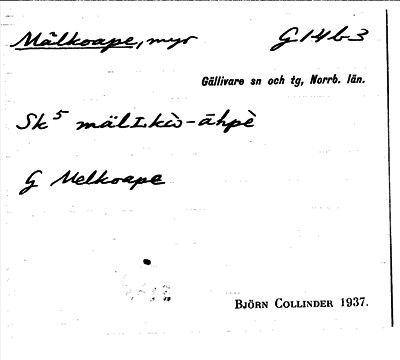 Mälkoape, myr G 14 b 3
Gällivare sn och tg, Norrb. län.
Sk⁵ mälɪkὼ-āhpὲ
G Melkoape
BJÖRN COLLINDER 1937.